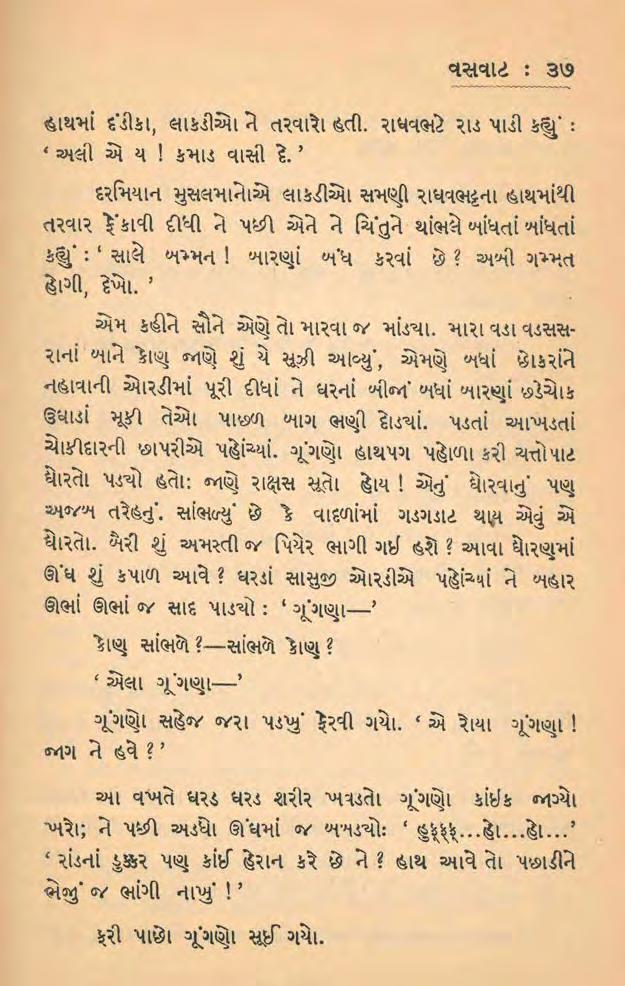 વસવાટ : ૩૭
હાથમાં દંડીકા, લાકડીઓ ને તરવારો હતી. રાધવભટે રાડ પાડી કહ્યું :
‘ અલી એ ય ! કમાડ વાસી દે. ’
દરમિયાન મુસલમાનોએ લાકડીઓ સમણી રાધવભટ્ટના હાથમાંથી
તરવાર ફેંકાવી દીધી ને પછી એને ને ચિંતુને થાંભલે બાંધતાં બાંધતાં
કહ્યું : ‘ સાલે બમ્મન ! બારણાં બંધ કરવાં છે ? અબી ગમ્મત
હોગી, દેખો. ’
એમ કહીને સૌને એણે તો મારવા જ માંડ્યા. મારા વડા વડસસ-
રાનાં બાને કોણ જાણે શું યે સૂઝી આવ્યું, એમણે બધાં છોકરાંને
નહાવાની ઓરડીમાં પૂરી દીધાં ને ઘરનાં બીજાં બધાં બારણાં છડેચોક
ઉઘાડાં મૂકી તેઓ પાછળ બાગ ભણી દોડ્યાં. પડતાં આખડતાં
ચોકીદારની છાપરીએ પહોંચ્યાં. ગૂંગણો હાથપગ પહોળા કરી ચત્તોપાટ
ઘોરતો પડ્યો હતો: જાણે રાક્ષસ સૂતો હોય ! એનું ઘોરવાનું પણ
અજબ તરેહનું. સાંભળ્યું છે કે વાદળાંમાં ગડગડાટ થાય એવું એ
ઘોરતો. બૈરી શું અમસ્તી જ પિયેર ભાગી ગઈ હશે ? આવા ઘોરણમાં
ઊંઘ શું કપાળ આવે ? ઘરડાં સાસુજી ઓરડીએ પહોંચ્યાં ને બહાર
ઊભાં ઊભાં જ સાદ પાડ્યો : ‘ ગૂંગણા—’
કોણ સાંભળે ?—સાંભળે કોણ ?
‘ એલા ગૂંગણા—’
ગૂંગણો સહેજ જરા પડખું ફેરવી ગયો. ‘ એ રોયા ગૂંગણા !
જાગ ને હવે ? ’
આ વખતે ઘરડ ઘરડ શરીર ખત્રડતો ગૂંગણો કાંઈક જાગ્યો
ખરો; ને પછી અડધો ઊંઘમાં જ બબડ્યો: ‘ હુક્ક્ક્ક્...હો...હો...’
‘ રાંડનાં ડુક્કર પણ કાંઈ હેરાન કરે છે ને ? હાથ આવે તો પછાડીને
ભેજું જ ભાંગી નાખું ! ’
ફરી પાછો ગૂંગણો સૂઈ ગયો.